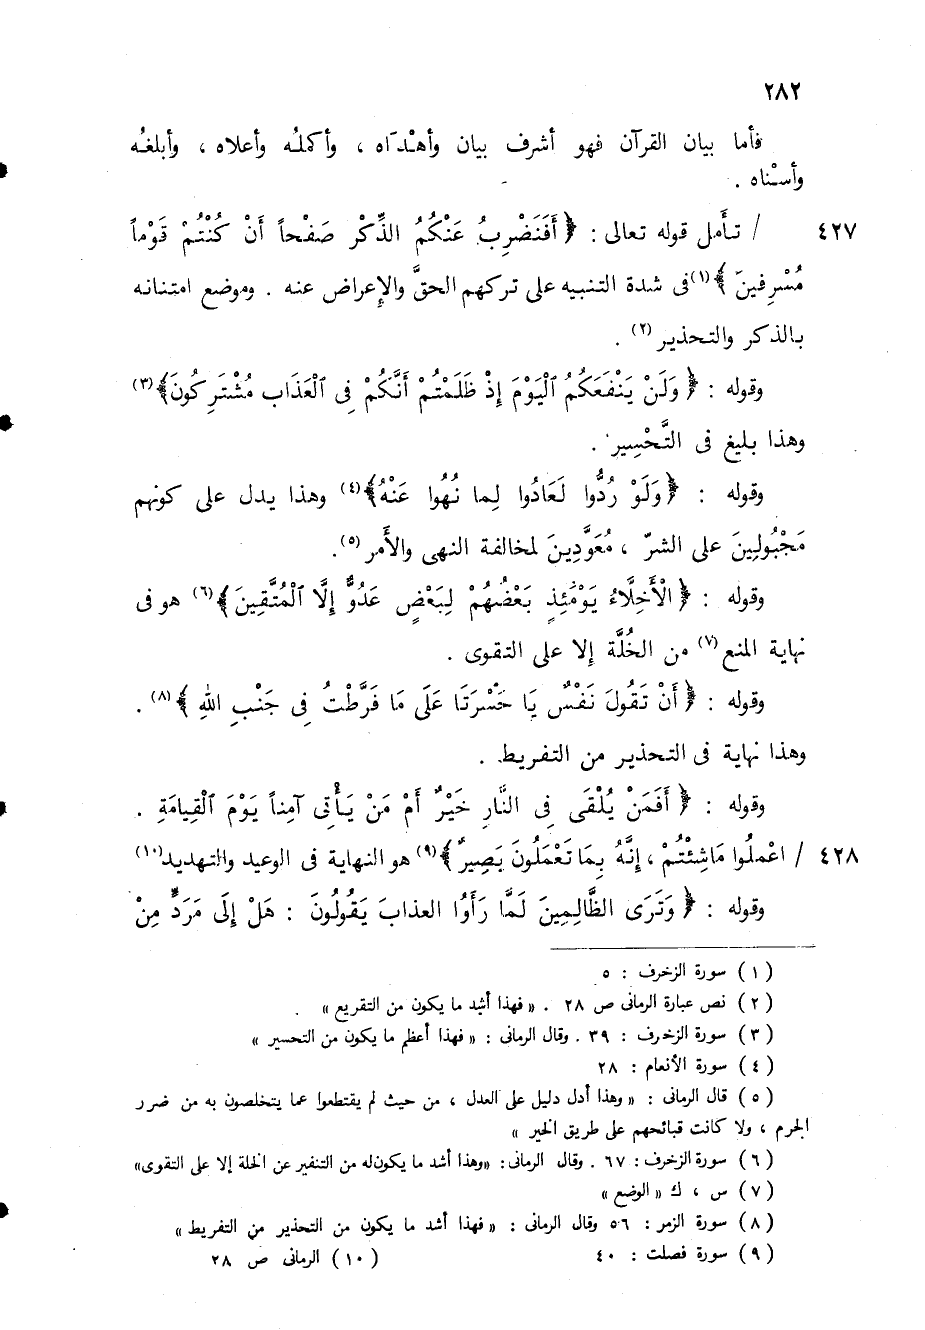 ٢٨٢
فأما بيان القرآن فهو أشرف بيان وأهْدَاه ، وأكملُه وأعلاه ، وأبلغُه
وأسْناه .
٤٢٧ / تأمل قوله تعالى : ﴿ أَفَنَضْرِبُ عَنْكُمُ الذِّكْرَ صَفْحاً أَنْ كُنْتُمْ قَوْماً
مُسْرِفينَ ﴾(١) فى شدة التنبيه على تركهم الحقَّ والإعراض عنه . وموضع امتنانه
بالذكر والتحذير(٢) .
وقوله : ﴿ وَلَنْ يَنْفَعَكُمُ ٱلْيَوْمَ إِذْ ظَلَمْتُمْ أَنَّكُمْ فِى ٱلْعَذَاب مُشْتَرِكُونَ﴾(٣)
وهذا بليغ فى التَّحْسِير .
وقوله : ﴿وَلَوْ رُدُّوا لَعَادُوا لِما نُهُوا عَنْهُ﴾(٤) وهذا يدل على كونهم
مَجْبُولِينَ على الشرّ ، مُعَوَّدِينَ لمخالفة النهى والأَمر(٥).
وقوله : ﴿ الْأَخِلَّاءُ يَوْمَئِذٍ بَعْضُهُمْ لِبَعْضٍ عَدُوٌّ إِلَّا ٱلْمُتَّقِينَ﴾(٦) هو فى
نهاية المنع(٧) من الخُلَّة إلا على التقوى .
وقوله : ﴿ أَنْ تَقُولَ نَفْسٌ يَا حَسْرَتَا عَلَى مَا فَرَّطْتُ فِى جَنْبِ اللهِ ﴾(٨) .
وهذا نهاية فى التحذير من التفريط .
وقوله : ﴿ أَفَمَنْ يُلْقَى فِى النَّارِ خَيْرٌ أَمْ مَنْ يَأْتِى آمِناً يَوْمَ ٱلْقِيامَةِ .
٤٢٨ / اعْملُوا مَاشِئْتُمْ ، إِنَّهُ بِمَا تَعْمَلُونَ بَصِيرٌ﴾(٩) هو النهاية فى الوعيد والتهديد(١٠)
وقوله : ﴿ وَتَرَى الظَّالِمِينَ لَمَّا رَأَوُا العذابَ يَقُولُونَ : هَلْ إِلَى مَرَدٍّ مِنْ
(١) سورة الزخرف : ٥
(٢) نص عبارة الرمانى ص ٢٨ . « فهذا أشد ما يكون من التقريع » .
(٣) سورة الزخرف : ٣٩ . وقال الرمانى : « فهذا أعظم ما يكون من التحسير »
(٤) سورة الأنعام : ٢٨
(٥) قال الرمانى : « وهذا أدل دليل على العدل ، من حيث لم يقتطعوا عما يتخلصون به من ضرر
الجرم ، ولا كانت قبائحهم على طريق الخير »
(٦) سورة الزخرف : ٦٧ . وقال الرمانى : «وهذا أشد ما يكون له من التنفير عن الخلة إلا على التقوى»
(٧) س ، ك « الوضع »
(٨) سورة الزمر : ٥٦ وقال الرمانى : « فهذا أشد ما يكون من التحذير من التفريط »
(٩) سورة فصلت : ٤٠ (١٠) الرمانى ص ٢٨